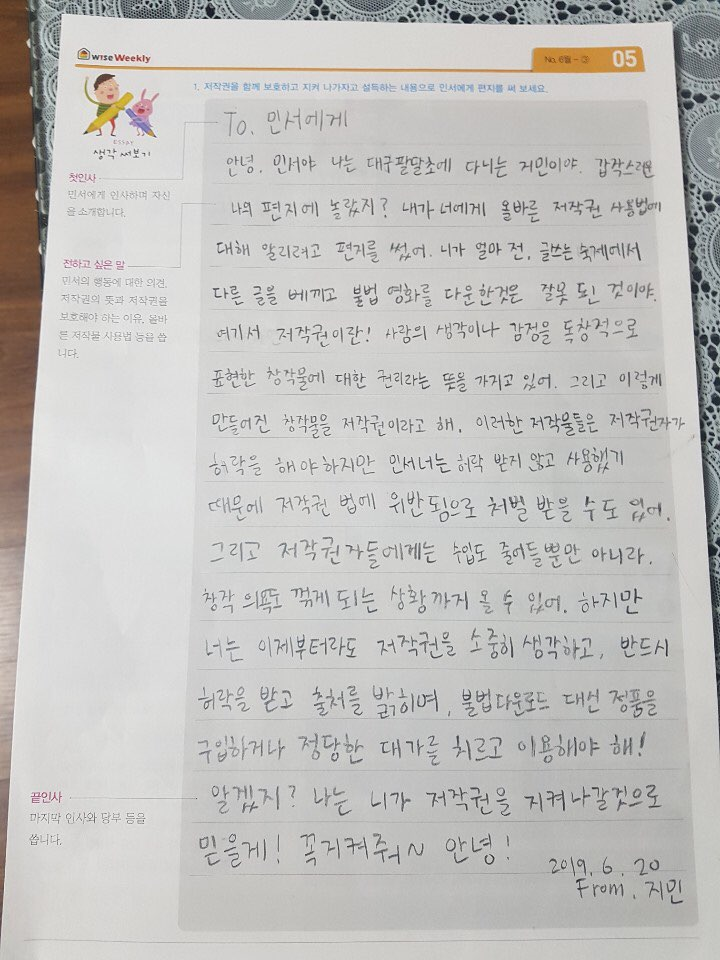 wise Weekly
No. 6월 - ③ 05
1. 저작권을 함께 보호하고 지켜 나가자고 설득하는 내용으로 인서에게 편지를 써 보세요.
ESSAY
생각 써보기
첫인사
민서에게 인사하며 자신
을 소개합니다.
전하고 싶은 말
민서의 행동에 대한 의견,
저작권의 뜻과 저작권을
보호해야 하는 이유, 올바
른 저작물 사용법 등을 씁
니다.
끝인사
마지막 인사와 당부 등을
씁니다.
To. 민서에게
안녕. 민서야 나는 대구팔달초에 다니는 지민이야. 갑작스러운
나의 편지에 놀랐지? 내가 너에게 올바른 저작권 사용법에
대해 알리려고 편지를 썼어. 니가 얼마 전, 글쓰는 숙제에서
다른 글을 베끼고 불법 영화를 다운한것은 잘못 된 것이야.
여기서 저작권이란! 사람의 생각이나 감정을 독창적으로
표현한 창작물에 대한 권리라는 뜻을 가지고 있어. 그리고 이렇게
만들어진 창작물을 저작권이라고 해. 이러한 저작물들은 저작권자가
허락을 해야하지만 민서너는 허락 받지 않고 사용했기
때문에 저작권 법에 위반 됨으로 처벌 받을 수도 있어.
그리고 저작권자들에게는 수입도 줄어들뿐만 아니라.
창작 의욕도 꺾게 되는 상황까지 올 수 있어. 하지만
너는 이제부터라도 저작권을 소중히 생각하고, 반드시
허락을 받고 출처를 밝히며, 불법다운로드 대신 정품을
구입하거나 정당한 대가를 치르고 이용해야 해!
알겠지? 나는 니가 저작권을 지켜나갈것으로
믿을게! 꼭지켜줘~ 안녕!
2019. 6. 20
From. 지민